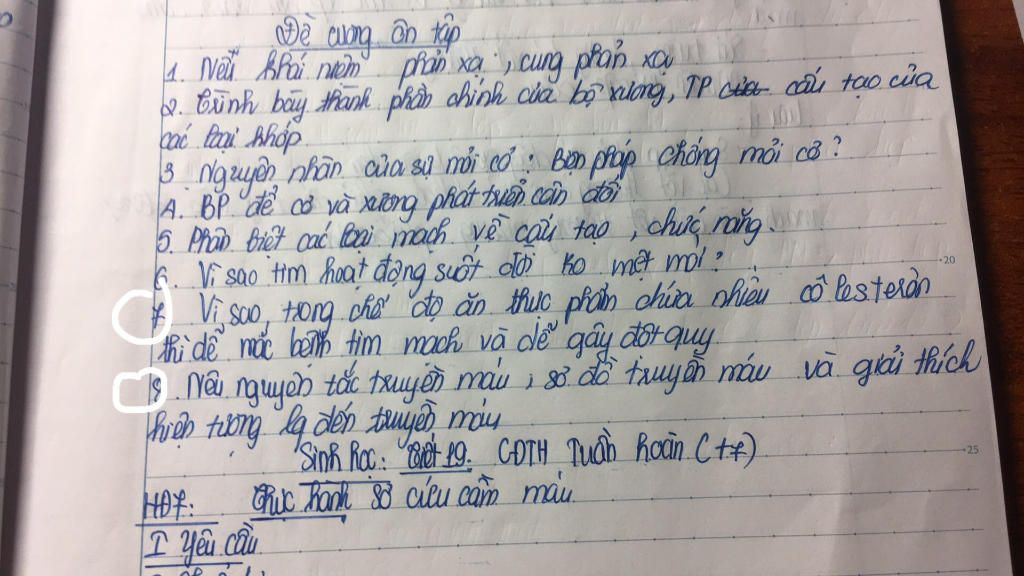 Đề cương ôn tập
1. Nêu khái niệm phản xạ, cung phản xạ
2. Trình bày thành phần chính của bộ xương, TP của cấu tạo của
các loại khớp
3. Nguyên nhân của sự mỏi cơ? Biện pháp chống mỏi cơ?
4. BP để cơ và xương phát triển cân đối
5. Phân biệt các loại mạch về cấu tạo, chức năng.
6. Vì sao tim hoạt động suốt đời ko mệt mỏi?
7. Vì sao trong chế độ ăn thực phẩm chứa nhiều côlesterôn
thì dễ mắc bệnh tim mạch và dễ gây đột quỵ
8. Nêu nguyên tắc truyền máu, sơ đồ truyền máu và giải thích
hiện tượng lq đến truyền máu
Sinh học: Tiết 19. CĐTH Tuần hoàn (t7)
HĐ7: Thực hành sơ cứu cầm máu
I Yêu cầu